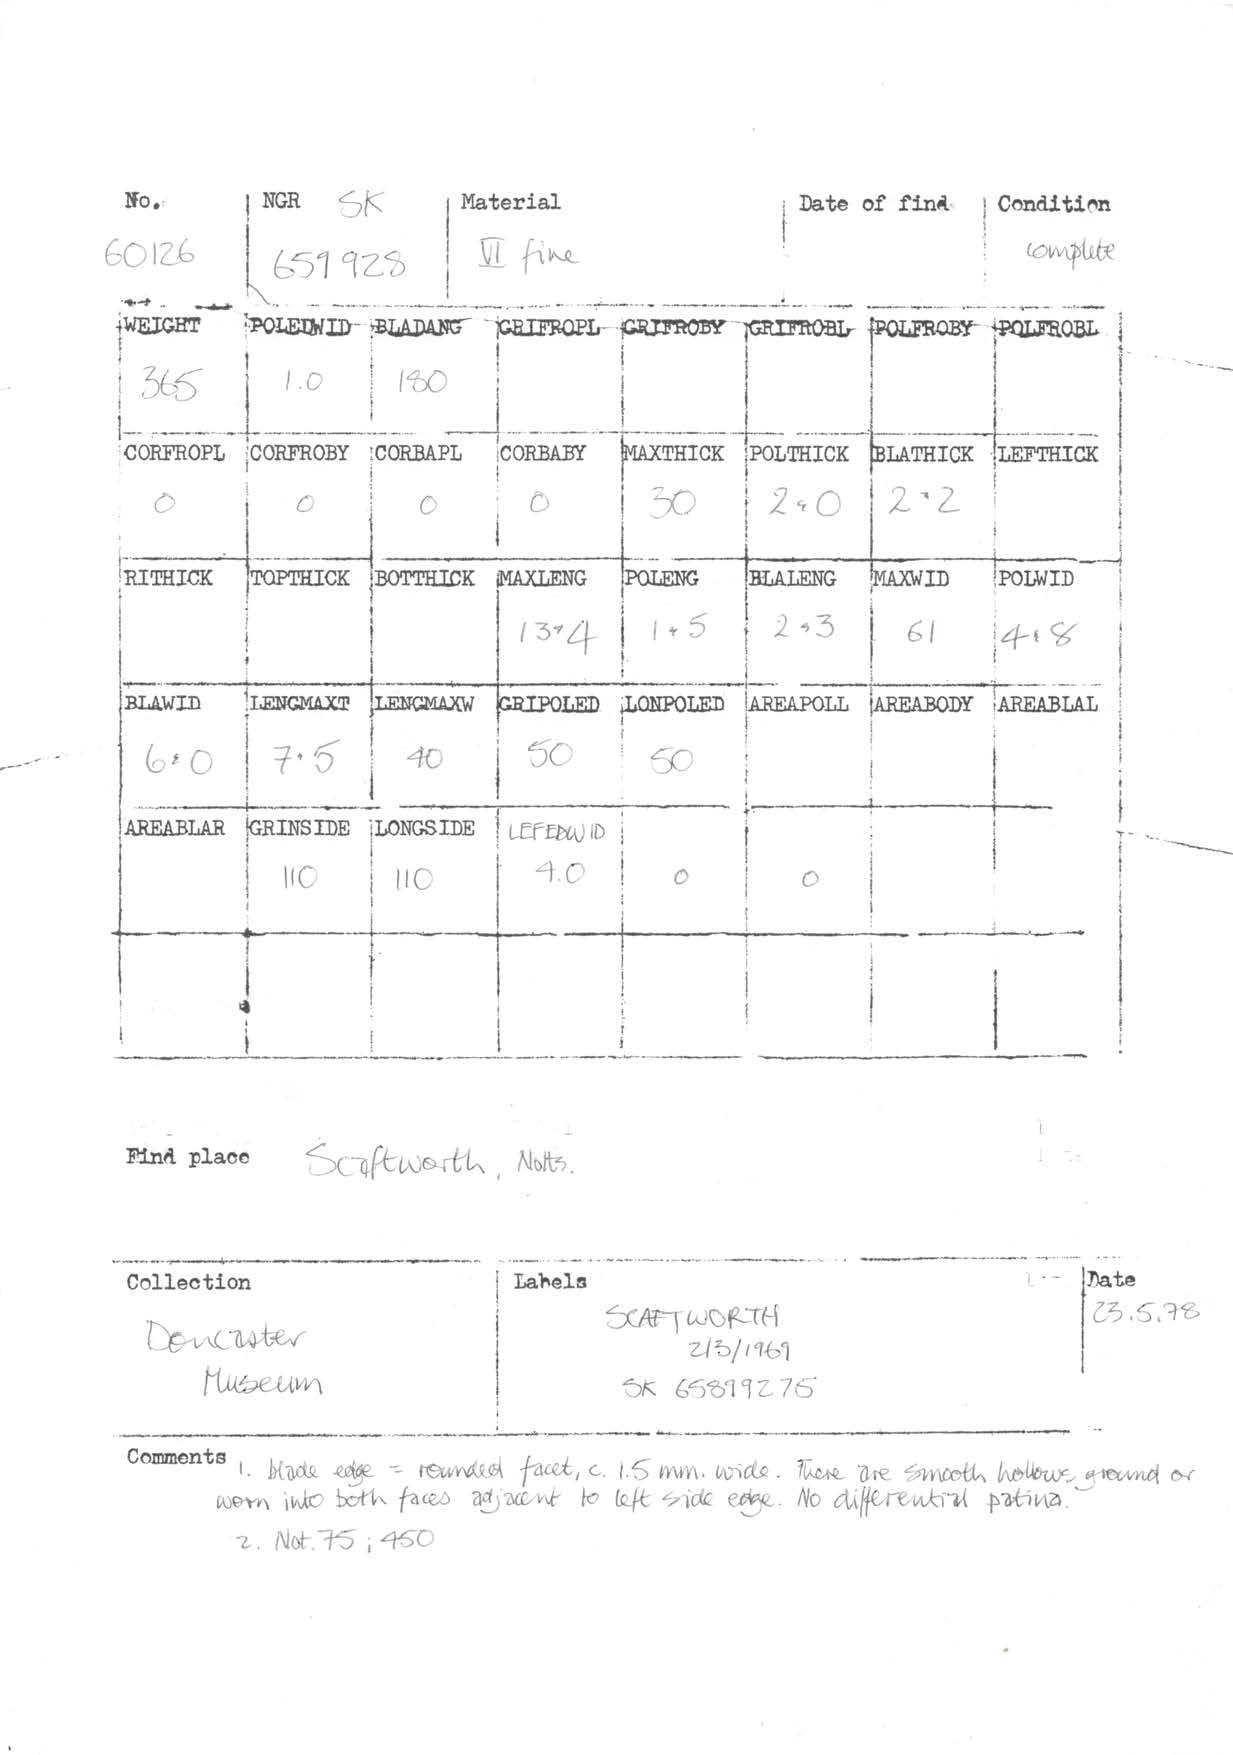 No. NGR SK Material Date of find Condition
60126 659928 VI fine complete
WEIGHT POLEDWID BLADANG GRIFROPL GRIFROBY GRIFROBL POLFROBY POLFROBL
365 1.0 180
CORFROPL CORFROBY CORBAPL CORBABY MAXTHICK POLTHICK BLATHICK LEFTHICK
0 0 0 0 30 2.0 2.2
RITHICK TOPTHICK BOTTHICK MAXLENG POLENG BLALENG MAXWID POLWID
13.4 1.5 2.3 61 4.8
BLAWID LENGMAXT LENGMAXW GRIPOLED LONPOLED AREAPOLL AREABODY AREABLAL
6.0 7.5 40 50 50
AREABLAR GRINSIDE LONGSIDE LEFEDWID
110 110 4.0 0 0
Find place Scaftworth, Notts.
Collection Labels Date
Doncaster SCAFTWORTH 23.5.78
Museum 2/3/1969
SK 65899275
Comments 1. blade edge = rounded facet, c. 1.5 mm. wide. There are smooth hollows ground or
worn into both faces adjacent to left side edge. No differential patina.
2. Not. 75 ; 450